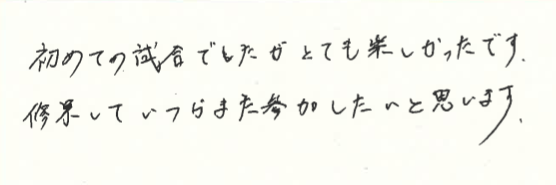 初めての試合でしたがとても楽しかったです.
修業していつかまた参加したいと思います.